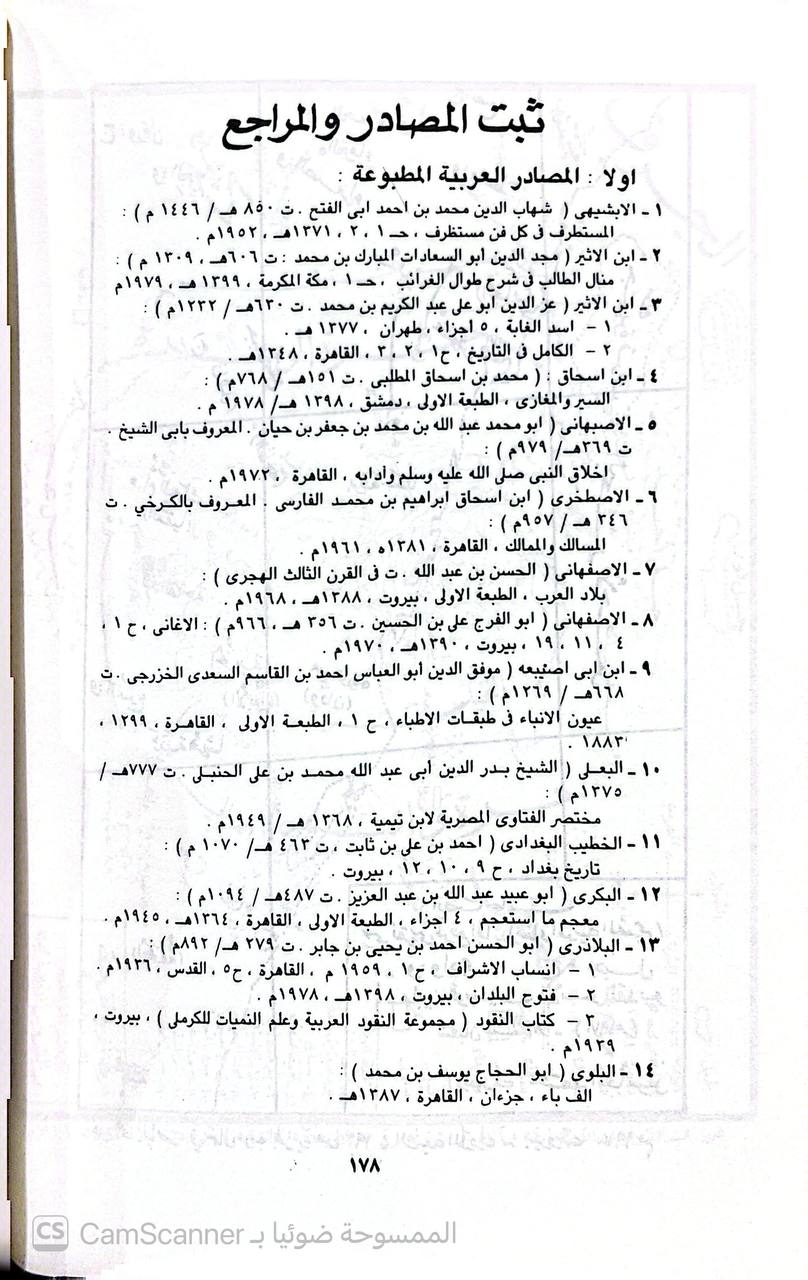 ثبت المصادر والمراجع
اولا : المصادر العربية المطبوعة :
١ - الابشيهى ( شهاب الدين محمد بن احمد ابى الفتح . ت ٨٥٠ هـ / ١٤٤٦ م ) :
المستطرف فى كل فن مستظرف ، حـ ١ ، ٢ ، ١٣٧١هـ ، ١٩٥٢م .
٢ - ابن الاثير ( مجد الدين أبو السعادات المبارك بن محمد : ت ٦٠٦هـ ، ١٣٠٩ م ) :
منال الطالب فى شرح طوال الغرائب ، حـ ١ ، مكة المكرمة ، ١٣٩٩ هـ ، ١٩٧٩م
٣ - ابن الاثير ( عز الدين ابو على عبد الكريم بن محمد . ت ٦٣٠هـ / ١٢٣٢م ) :
١ - اسد الغابة ، ٥ أجزاء ، طهران ، ١٣٧٧ هـ .
٢ - الكامل فى التاريخ ، ح١ ، ٢ ، ٣ ، القاهرة ، ١٣٤٨هـ .
٤ - ابن اسحاق : ( محمد بن اسحاق المطلبى . ت ١٥١هـ / ٧٦٨م ) :
السير والمغازى ، الطبعة الاولى ، دمشق ، ١٣٩٨ هـ/ ١٩٧٨ م .
٥ - الاصبهانى ( ابو محمد عبد الله بن محمد بن جعفر بن حيان . المعروف بابى الشيخ .
ت ٣٦٩هـ/ ٩٧٩م ) :
اخلاق النبى صلى الله عليه وسلم وأدابه ، القاهرة ، ١٩٧٢م .
٦ - الاصطخرى ( ابن اسحاق ابراهيم بن محمد الفارسى . المعروف بالكرخي . ت
٣٤٦ هـ / ٩٥٧م ) :
المسالك والممالك ، القاهرة ، ١٣٨١ه ، ١٩٦١م .
٧ - الاصفهانى ( الحسن بن عبد الله . ت فى القرن الثالث الهجرى ) :
بلاد العرب ، الطبعة الاولى ، بيروت ، ١٣٨٨هـ ، ١٩٦٨م .
٨ - الاصفهانى ( ابو الفرج على بن الحسين . ت ٣٥٦ هـ ، ٩٦٦م ) : الاغانى ، ح ١ ،
٤ ، ١١ ، ١٩ ، بيروت ، ١٣٩٠هـ ، ١٩٧٠م .
٩ - ابن ابى اصيبعه ( موفق الدين أبو العباس احمد بن القاسم السعدى الخزرجى . ت
٦٦٨هـ / ١٢٦٩م ) :
عيون الانباء فى طبقات الاطباء ، ح ١ ، الطبعة الاولى ، القاهرة ، ١٢٩٩ ،
١٨٨٣ .
١٠ - البعلى ( الشيخ بدر الدين أبى عبد الله محمد بن على الحنبلى . ت ٧٧٧هـ /
١٣٧٥م ) :
مختصر الفتاوى المصرية لابن تيمية ، ١٣٦٨ هـ / ١٩٤٩م .
١١ - الخطيب البغدادى ( احمد بن على بن ثابت ، ت ٤٦٣ هـ/ ١٠٧٠ م ) :
تاريخ بغداد ، ح ٩ ، ١٠ ، ١٢ ، بيروت .
١٢ - البكرى ( ابو عبيد عبد الله بن عبد العزيز . ت ٤٨٧هـ / ١٠٩٤م ) :
معجم ما استعجم ، ٤ اجزاء ، الطبعة الاولى ، القاهرة ، ١٣٦٤هـ ، ١٩٤٥م .
١٣ - البلاذرى ( ابو الحسن احمد بن يحيى بن جابر . ت ٢٧٩ هـ/ ٨٩٢م ) :
١ - انساب الاشراف ، ح ١ ، ١٩٥٩ م ، القاهرة ، ح٥ ، القدس ، ١٩٣٦م .
٢ - فتوح البلدان ، بيروت ، ١٣٩٨هـ ، ١٩٧٨م .
٣ - كتاب النقود ( مجموعة النقود العربية وعلم النميات للكرملى ) ، بيروت ،
١٩٣٩م .
١٤ - البلوى ( ابو الحجاج يوسف بن محمد ) :
الف باء ، جزءان ، القاهرة ، ١٣٨٧هـ .
١٧٨
CS CamScanner الممسوحة ضوئيا بـ